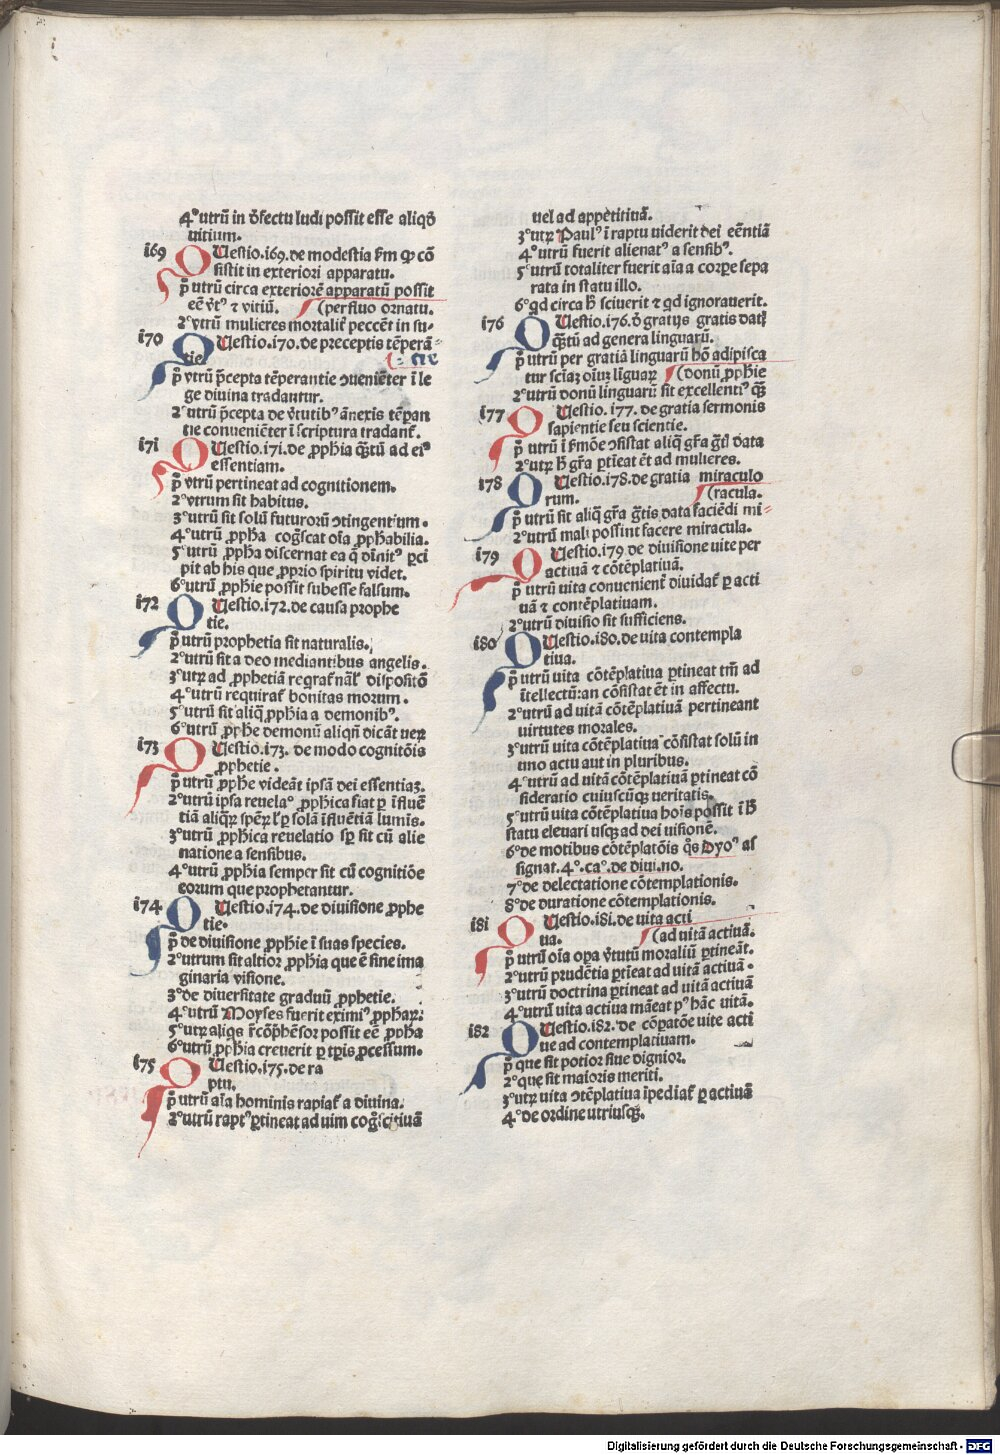 4°utrū in ꝺefectu ludi possit esse aliqꝺ
vitium.
i69 QUestio.i69.de modestia ẜm ꝙ cō
sistit in exteriori apparatu.
p̄ utrū circa exteriorē apparatū possit
eē v̓tꝰ ⁊ vitiū. (perfluo ornatu.
2°vtrū mulieres mortalit̓ peccēt in su-
i70 QUestio.i70.de preceptis tēperā-
tie (:
p̄ vtrū p̄cepta tēperantie ꝯueniēter ī le
ge diuina tradantur.
2°utrū p̄cepta de v̓tutibꝰ ānexis tēꝑan
tie conueniēter ī scriptura tradant̉.
i7i QUestio.i7i.de ꝓphīa q̄tū ad eiꝰ
essentiam.
p̄ vtrū pertineat ad cognitionem.
2°vtrum sit habitus.
3°utrū sit solū futurorū ꝯtingentium.
4°utrū ꝓphīa cog̓scat oīa ꝓphābilia.
5°utrū ꝓphā discernat ea q̄ dīnitꝰ ꝑci
pit ab his que ꝓprio spiritu videt.
6°utrū ꝓphīe possit subesse falsum.
i72 QUestio.i72.de causa prophe
tie.
p̄ utrū prophetia sit naturalis.
2°utrū sit a deo mediantibus angelis.
3°utꝝ ad ꝓphetiā reqrat̉ nāl̓ dispositō
4°utrū requirat̉ bonitas morum.
5°utrū sit aliq̄ ꝓphīa a demonibꝰ.
6°utrū ꝓphē demonū aliqn̄ dicāt veꝝ
i73 QUestio.i73. de modo cognitōis
ꝓphetie.
p̄ utrū ꝓphē videāt ipsā dei essentiaꝫ.
2°utrū ipsa reuelaᵒ ꝓphīca fiat ꝑ īfluē
tiā aliqꝝ spēꝝ l̓ ꝑ solā īfluētiā lumīs.
3°utrū ꝓphīca reuelatio sꝑ sit cū alie
natione a sensibus.
4°utrū ꝓphīa semper sit cū cognitiōe
eorum que prophetantur.
i74 QUestio.i74.de diuisione ꝓphe
tie.
p̄ de diuisione ꝓphīe ī suas species.
2°utrum sit altior ꝓphīa que ē sine ima
ginaria visione.
3°de diuersitate graduū ꝓphetie.
4°utrū Moyses fuerit eximiꝰ ꝓphaꝝ.
5°utꝝ aliqs 2cōp̄hēsor possit eē ꝓphā
6°utrū ꝓphīa creuerit ꝑ tꝑis ꝓcessum.
i75 QUestio.i75.de ra
ptu.
p̄ utrū aīa hominis rapiat̉ a diuina.
2°utrū raptꝰ ꝑtineat ad uim cog̓scitiuā
uel ad appetitiuā.
3°utꝝ Paulꝰ ī raptu uiderit dei eēntiā
4°utrū fuerit alienatꝰ a sensibꝰ.
5°utrū totaliter fuerit aīa a corꝑe sepa
rata in statu illo.
6°qd circa h̄ sciuerit ⁊ qd ignorauerit.
i76 QUestio.i76.ꝺ̓ gratijs gratis datꝭ
q̄tū ad genera linguarū.
p̄ utrū per gratiā linguarū hō adipisca
tur sciāꝫ oīuꝫ līguaꝝ (donū ꝓphīe
2°utrū donū linguarū sit excellentiꝰ q̄
i77 QUestio. i77. de gratia sermonis
sapientie seu scientie.
p̄ utrū ī ẜmōe ꝯsistat aliq̄ gr̄a gr̄tꝭ data
2°utꝝ h̄ gr̄a ꝑtīeat ēt ad mulieres.
i78 QUestio.i78.de gratia miraculo
rum. (racula.
p̄ utrū sit aliq̄ gr̄a gr̄tis data faciēdi mi-
2°utrū mali possint facere miracula.
i79 QUestio.i79.de diuisione uite per
actiuā ⁊ cōtēplatiuam.
p̄ utrū uita conuenient̓ diuidat̉ ꝑ acti
uā ⁊ contēplatiuam.
2°utrū diuisio sit sufficiens.
i80 QUestio.i80.de uita contempla
tiua.
p̄ utrū uita cōtēplatiua ꝑtineat tm̄ ad
ītellectū:an cōsistat ēt in affectu.
2°utrū ad uitā cōtēplatiuā pertineant
uirtutes morales.
3°utrū uita cōtēplatiua cōsistat solū in
uno actu aut in pluribus.
4°utrū ad uitā cōtēplatiuā ꝑtineat cō
sideratio cuiuscūqꝫ ueritatis.
5°utrū uita cōtēplatiua hoīs possit ī h̄
statu eleuari usqꝫ ad dei uisionē.
6°de motibus cōtēplatōis q̄s Dyoꝰ as
signat.4°.ca°.de diui.no.
7°de delectatione cōtemplationis.
8°de duratione cōtemplationis.
i8i QUestio.i8i.de uita acti
ua. (ad uitā actiuā.
p̄ utrū oīa oꝑa v̓tutū moraliū ꝑtineāt.
2°utrū prudētia ꝑtīeat ad uitā actiuā.
3°utrū doctrina ꝑtineat ad uitā actiuā
4°utrū uita actiua māeat pꝰ hāc uitā.
i82 QUestio.i82.de cōꝑatōe uite acti
ue ad contemplatiuam.
p̄ que sit potior siue dignior.
2°que sit maioris meriti.
3°utꝝ uita ꝯtēplatiua īpediat̉ ꝑ actiuā
4°de ordine utriusqꝫ.
Digitalisierung gefördert durch die Deutsche Forschungsgemeinschaft - DFG